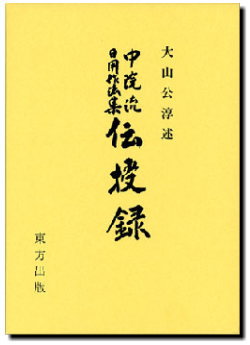 大山公淳述
中院流
日用作法集
伝授録
東方出版